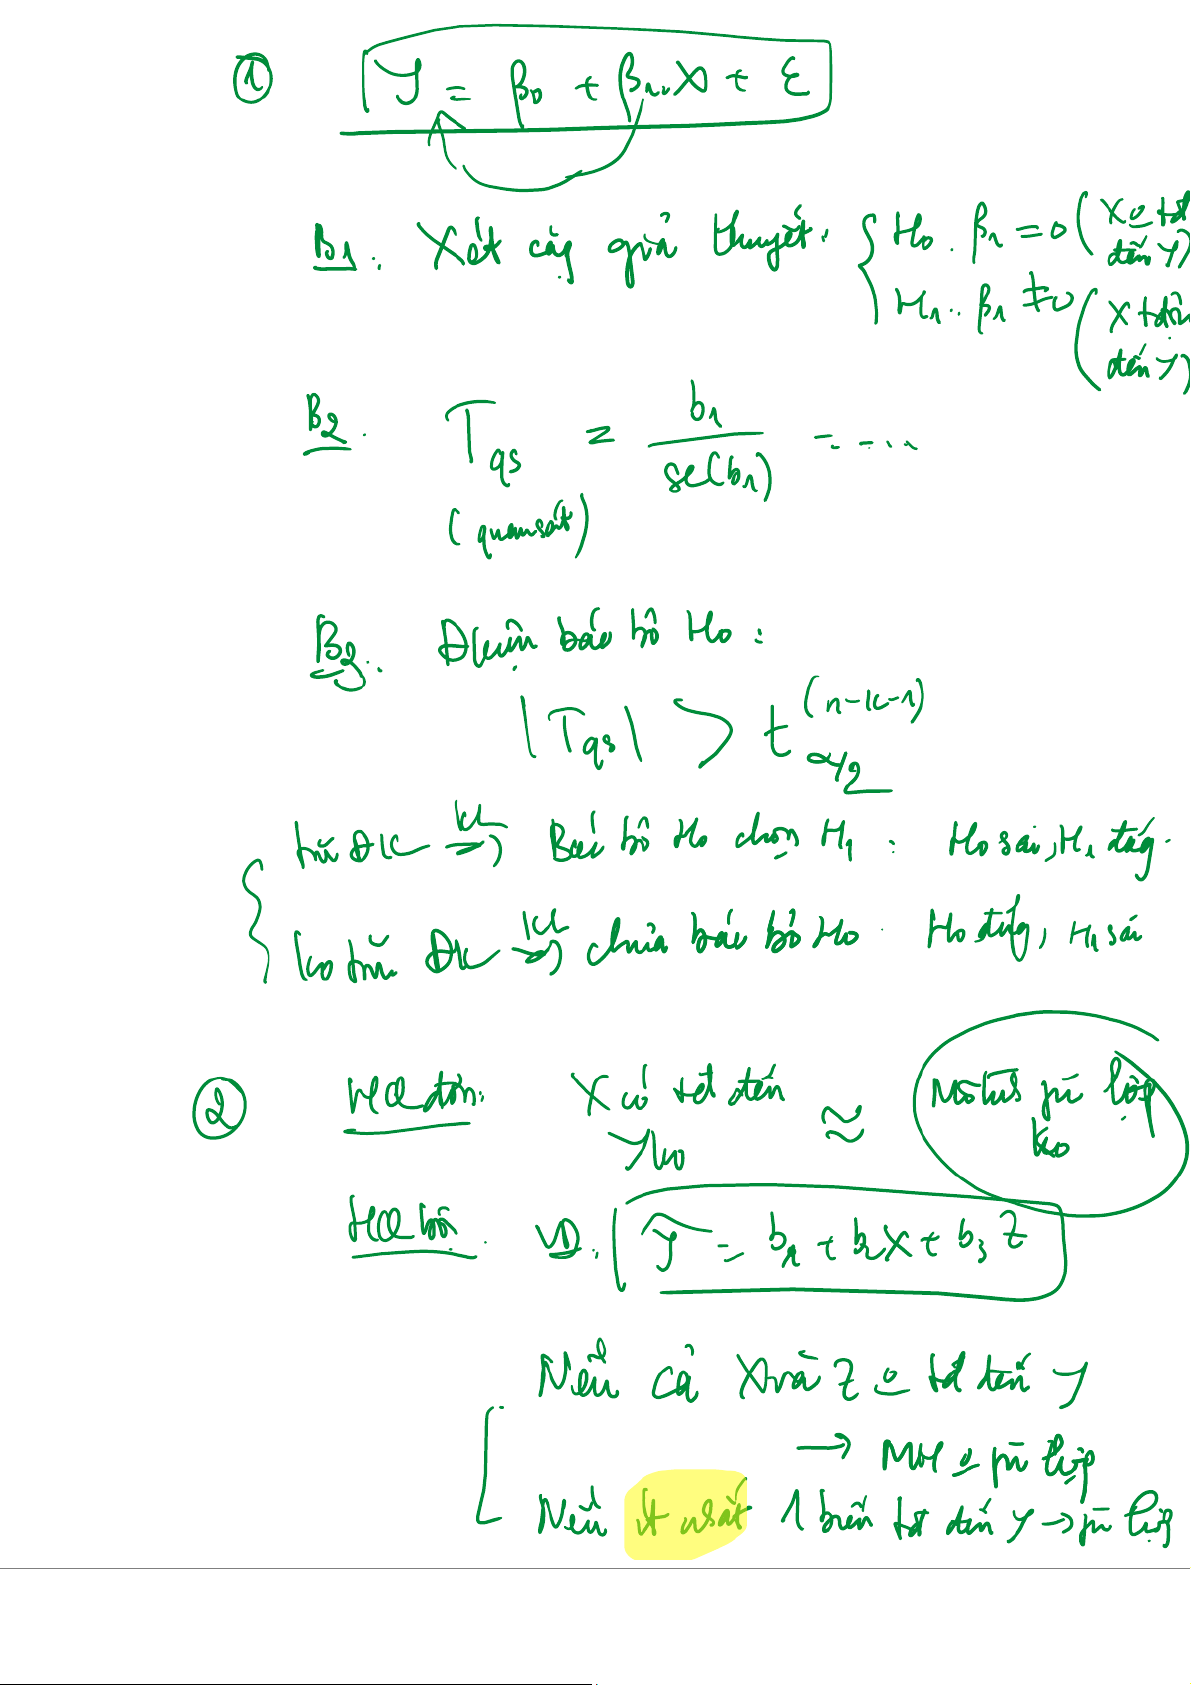 ① Y = β0 + β1.X + ε
B1: Xét cặp giả thuyết: { H0: β1 = 0 (X o tđ đến Y)
H1: β1 ≠ 0 (X tđộn đến Y)
B2: Tqs = b1 / se(b1) = ....
(quan sát)
B3: Đkiện bác bỏ H0:
|Tqs| > t α/2 (n-k-1)
{ trĩ ĐK KL⇒ Bác bỏ H0 chọn H1: H0 sai, H1 đúg.
ko trĩ ĐK KL⇒ chưa bác bỏ H0. H0 đúg, H1 sai
② HQ đơn: X có tđ đến Y ko ≈ hợp ko
HQ bội: VD: Y = b1 + b2X + b3Z
Nếu cả X và Z o tđ đến Y
→ MH o fù hợp
Nếu ít nhất 1 biến tđ đến Y → fù hợp